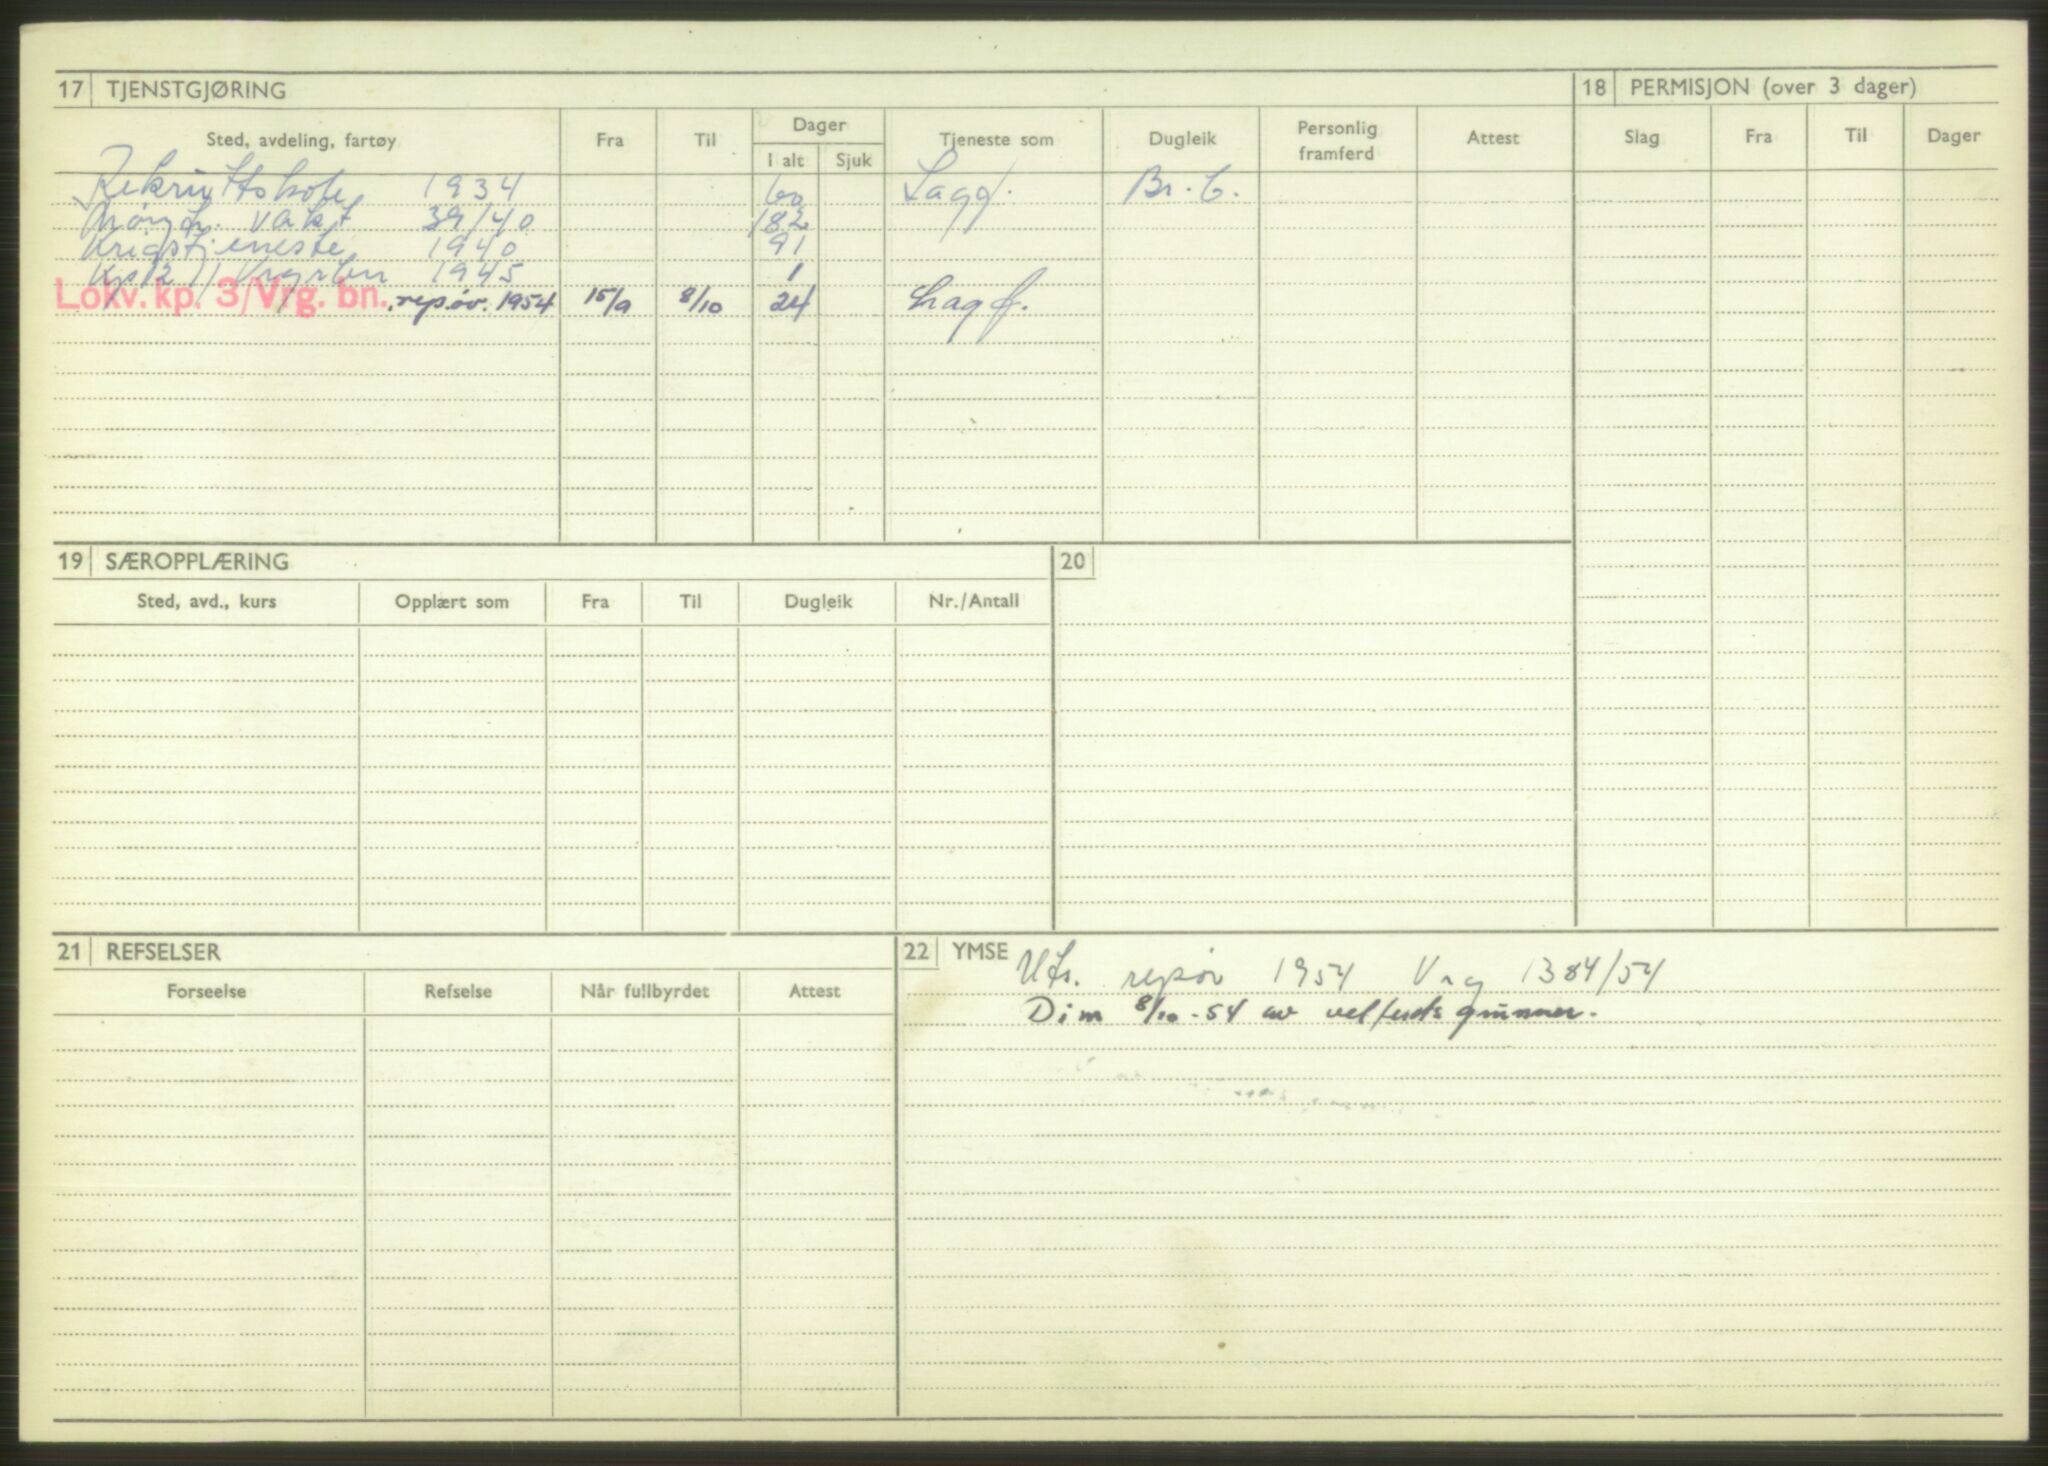 17 TJENSTGJØRING
18 PERMISJON (over 3 dager)
Sted, avdeling, fartøy Fra Til Dager Tjeneste som Dugleik Personlig framferd Attest Slag Fra Til Dager
I alt Sjuk
Rekruttskole 1934 60 Lagf. Br. C.
Nøytr. vakt 39/40 182
Krigstjeneste 1940 91
Kp 2 / Vrgrbn 1945 1
Lokv. kp. 3/Vrg. bn. rep.øv. 1954 15/9 8/10 24 Lagf.
19 SÆROPPLÆRING
20
Sted, avd., kurs Opplært som Fra Til Dugleik Nr./Antall
21 REFSELSER
Forseelse Refselse Når fullbyrdet Attest
22 YMSE Uts. repøv 1954 Vrg 1384/54
Dim 8/10-54 av velferdsgrunner.